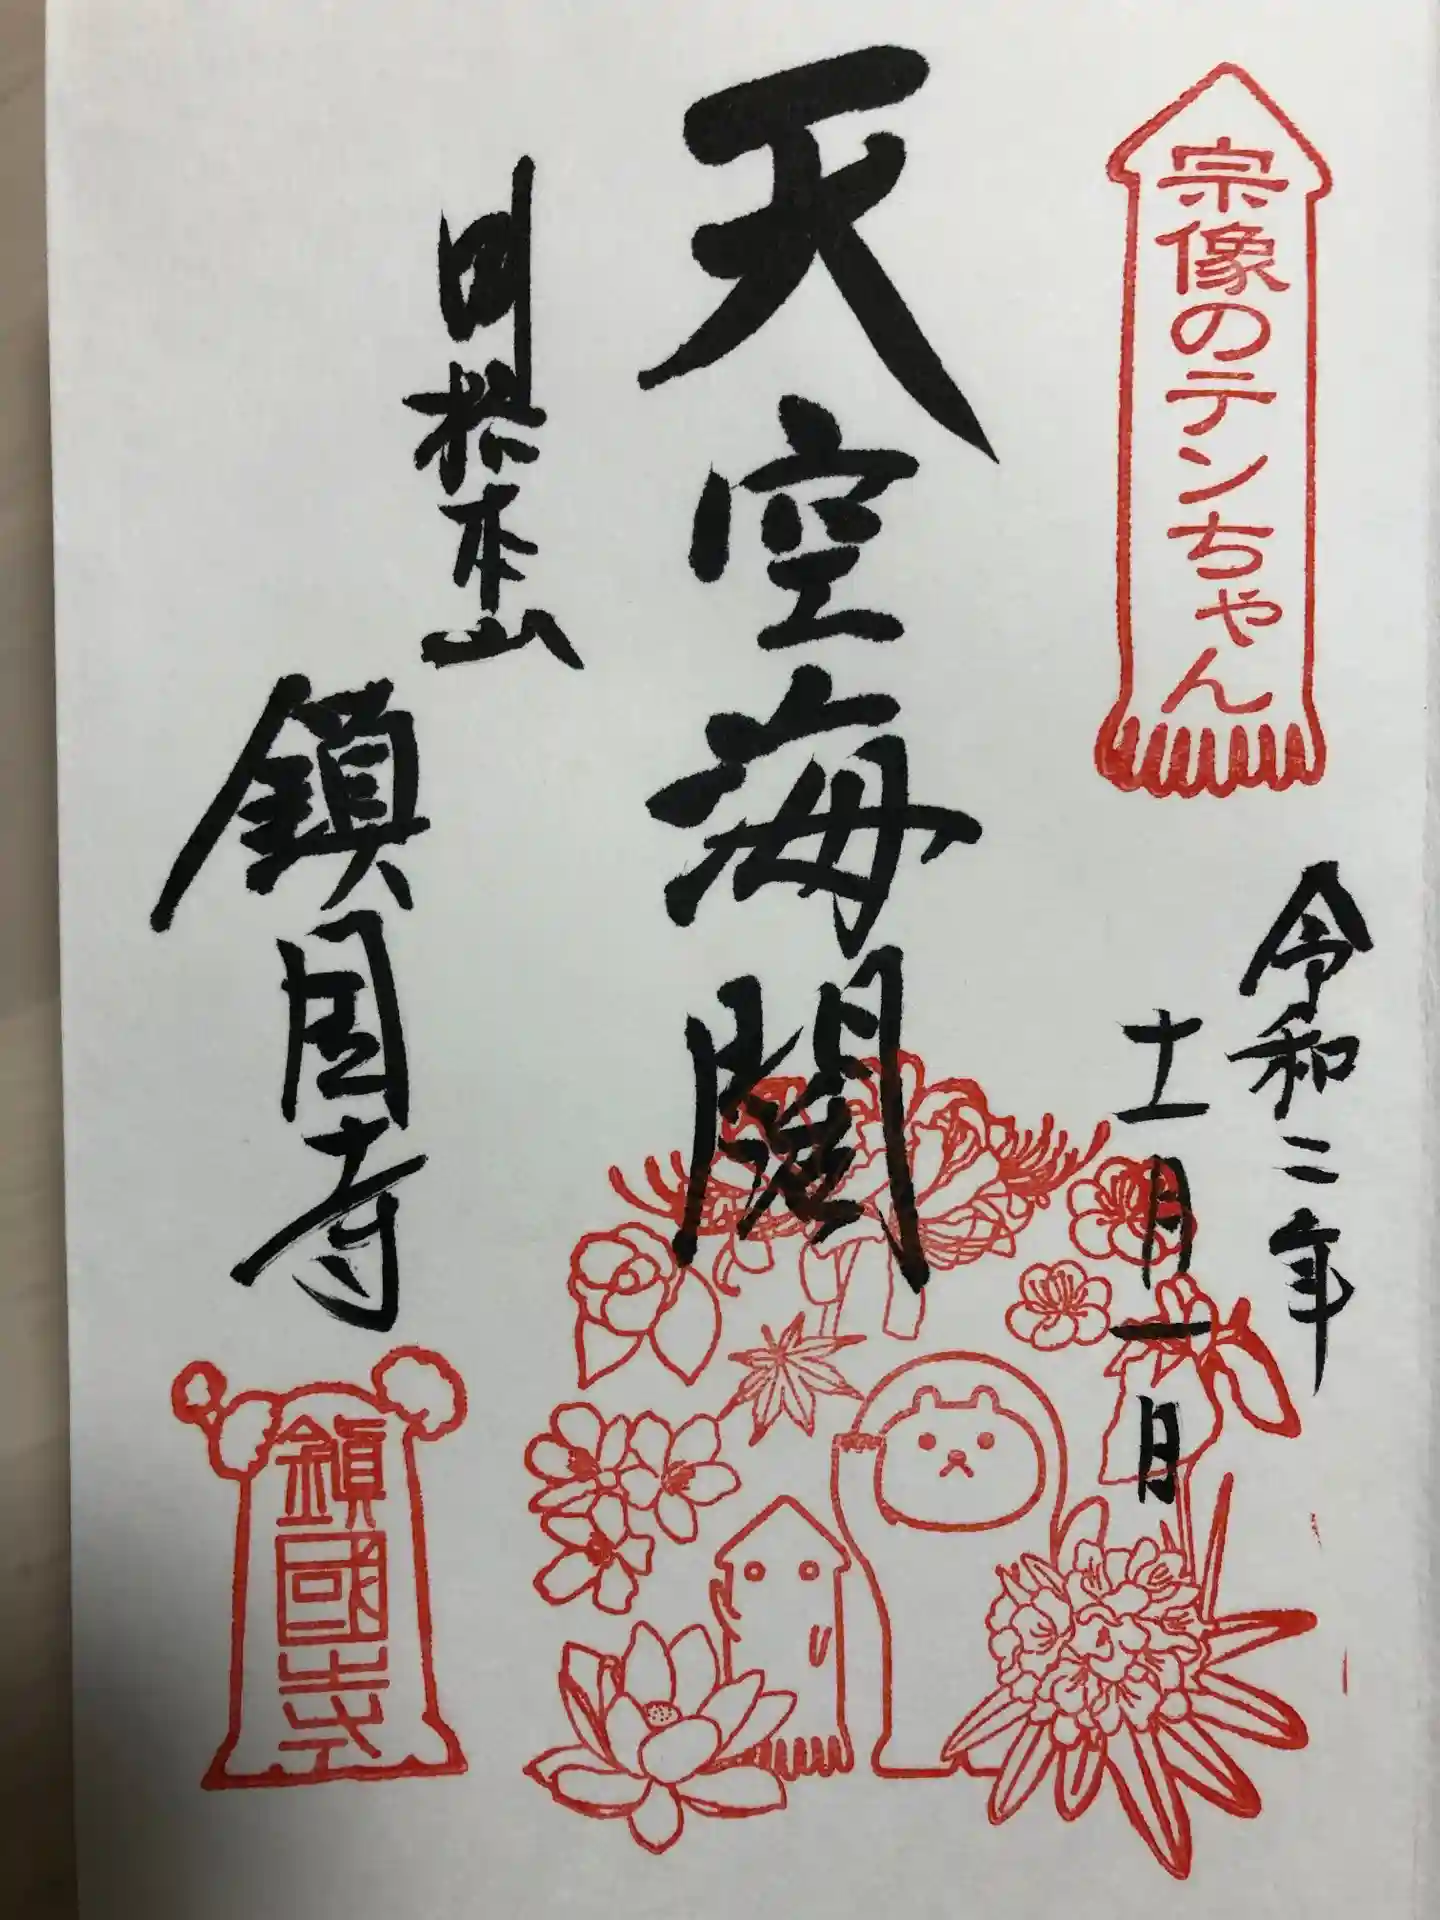 宗像のテンちゃん
令和二年
十一月一日
天空海闊
別格本山
鎮国寺
鎮國寺